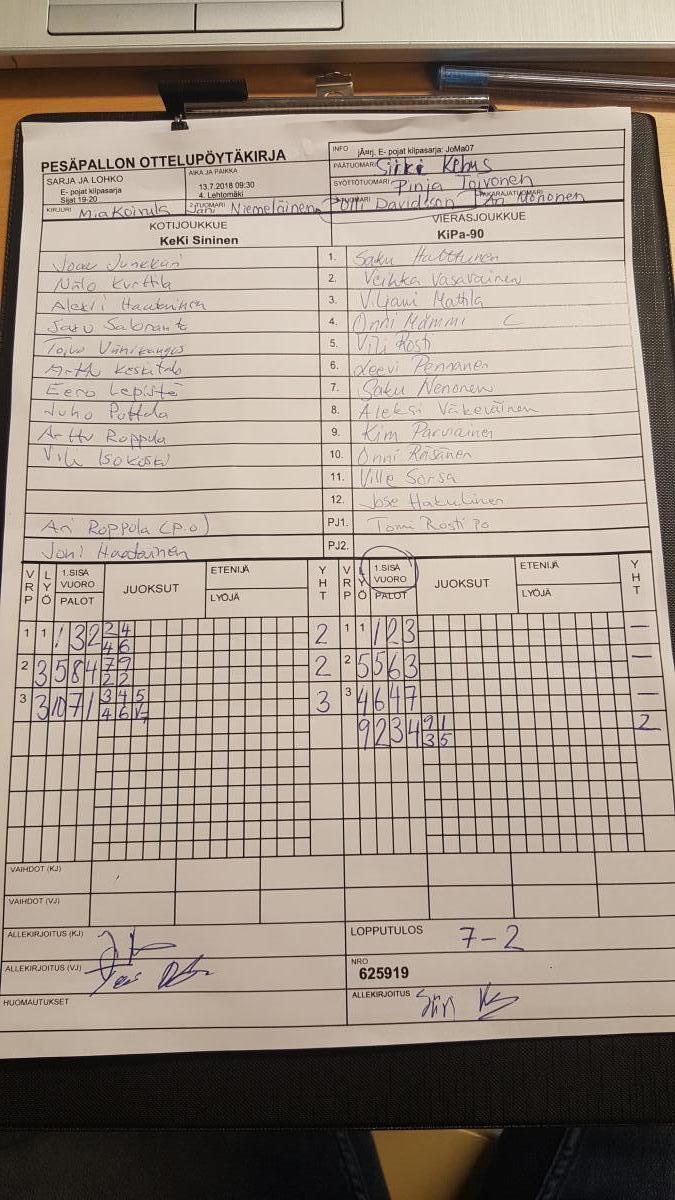 PESÄPALLON OTTELUPÖYTÄKIRJA
INFO jÄurj. E- pojat kilpasarja: JoMa07
SARJA JA LOHKO
E- pojat kilpasarja
Sijat 19-20
AIKA JA PAIKKA
13.7.2018 09:30
4. Lehtomäki
PÄÄTUOMARI Sirki Kehus
SYÖTTÖTUOMARI Pinja Toivonen
KIRJURI Mia Koivula 2-TUOMARI Jani Niemeläinen 3-TUOMARI Olli Davidsson TAKARAJATUOMARI Ari Mononen
KOTIJOUKKUE
KeKi Sininen
VIERASJOUKKUE
KiPa-90
Joau Junkkari 1. Saku Halttunen
Niilo Kurttila 2. Veikka Vasavainen
Aleksi Haatainen 3. Viljami Mattila
Saku Saloranta 4. Onni Mämmi C
Toivo Vähäkangas 5. Vili Rosti
Arttu Keskitalo 6. Leevi Pennanen
Eero Lepistö 7. Saku Nenonen
Juho Puttola 8. Aleksi Väkeväinen
Arttu Roppola 9. Kim Parviainen
Vili Isokoski 10. Onni Räsänen
11. Ville Sorsa
12. Jose Hakulinen
Ari Roppola (p.o) PJ1. Tomi Rosti po
Joni Haatainen PJ2.
VRP LYÖ 1.SISA VUORO PALOT JUOKSUT ETENIJÄ LYÖJÄ YHT VRP LYÖ 1.SISA VUORO PALOT JUOKSUT ETENIJÄ LYÖJÄ YHT
1 1 1 3 2 2 4 2 1 1 1 2 3 –
4 6
2 3 5 8 4 7 9 2 2 5 5 6 3 –
2 2
3 3 10 7 1 3 4 5 3 3 4 6 4 7 –
4 6 V7
9 2 3 4 2 1 2
3 5
VAIHDOT (KJ)
VAIHDOT (VJ)
ALLEKIRJOITUS (KJ)
LOPPUTULOS 7-2
ALLEKIRJOITUS (VJ)
NRO
625919
HUOMAUTUKSET
ALLEKIRJOITUS